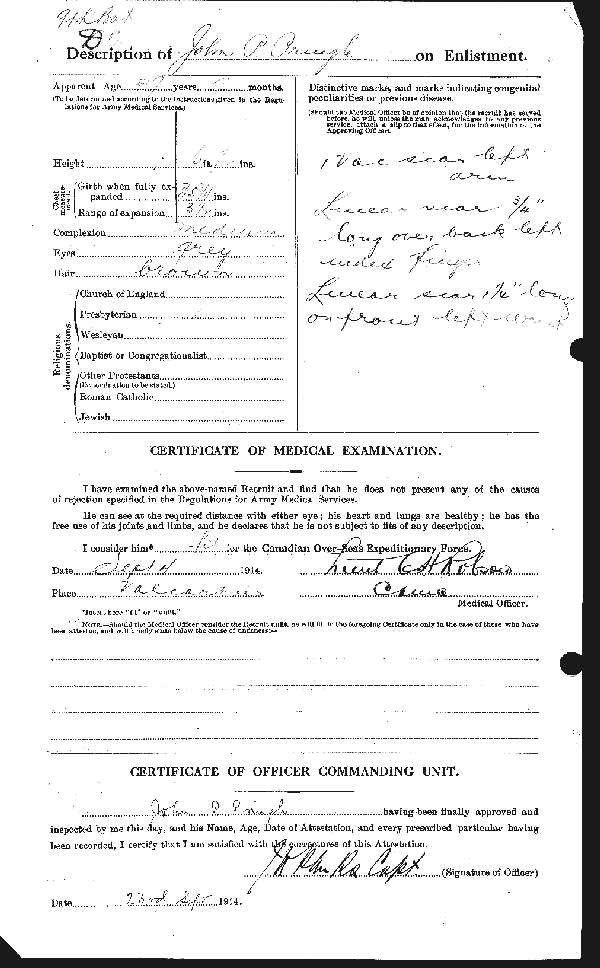 Description of John P Pringle on Enlistment.
Apparent Age years months.
(To be determined according to the instructions given in the Regu-
lations for Army Medical Services.)
Height 6 ft. ins.
Chest
measure-
ment.
Girth when fully ex-
panded ins.
Range of expansion ins.
Complexion medium
Eyes grey
Hair brown
Religious
denominations.
Church of England
Presbyterian
Wesleyan
Baptist or Congregationalist
Other Protestants
(Denomination to be stated.)
Roman Catholic
Jewish
Distinctive marks, and marks indicating congenital
peculiarities or previous disease.
(Should the Medical Officer be of opinion that the recruit has served
before, he will, unless the man acknowledges to any previous
service, attach a slip to that effect, for the information of the
Approving Officer).
1 Vac scar left
arm
Linear scar 3/4"
long over back left
index finger
Linear scar 1 1/2" long
on front left
CERTIFICATE OF MEDICAL EXAMINATION.
I have examined the above-named Recruit and find that he does not present any of the causes
of rejection specified in the Regulations for Army Medical Services.
He can see at the required distance with either eye; his heart and lungs are healthy; he has the
free use of his joints and limbs, and he declares that he is not subject to fits of any description.
I consider him* fit for the Canadian Over-Seas Expeditionary Force.
Date Sept 4 1914. Lieut
Place Valcartier
Medical Officer.
*Insert here "fit" or "unfit."
NOTE.—Should the Medical Officer consider the Recruit unfit, he will fill in the foregoing Certificate only in the case of those who have
been attested, and will briefly state below the cause of unfitness:—
CERTIFICATE OF OFFICER COMMANDING UNIT.
John P Pringle having been finally approved and
inspected by me this day, and his Name, Age, Date of Attestation, and every prescribed particular having
been recorded, I certify that I am satisfied with the correctness of this Attestation.
Capt (Signature of Officer)
Date 23rd Sept 1914.